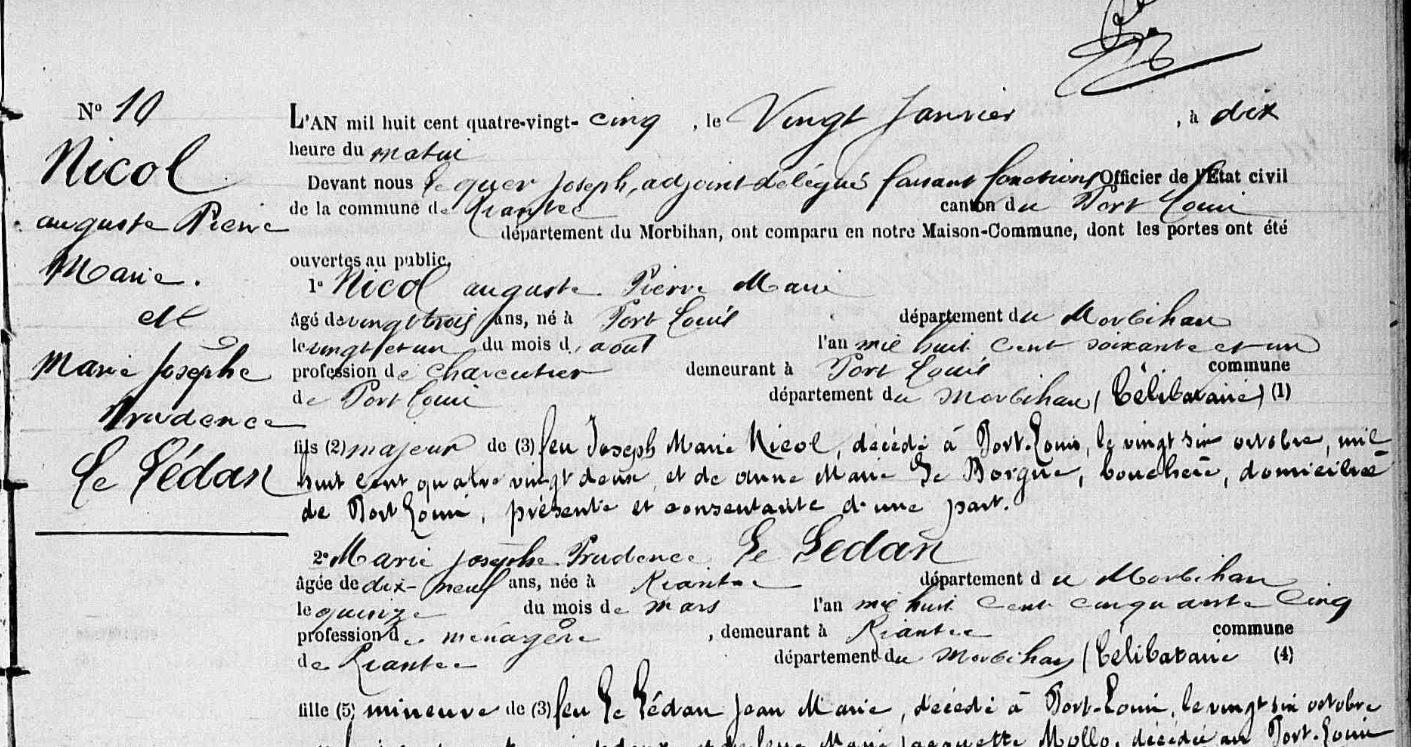 N° 10
Nicol
auguste Pierre
Marie.
et
Marie Josèphe
Prudence
Le Lédan
L'AN mil huit cent quatre-vingt- cinq , le Vingt Janvier , à dix
heure du matin
Devant nous Le quer Joseph, adjoint délégué faisant fonctions Officier de l'État civil
de la commune de Riantec canton du Port Louis
département du Morbihan, ont comparu en notre Maison-Commune, dont les portes ont été
ouvertes au public,
1° Nicol auguste Pierre Marie
âgé de vingt trois ans, né à Port Louis département du Morbihan
le vingt et un du mois d' aout l'an mil huit cent soixante et un
profession de charcutier demeurant à Port Louis commune
de Port Louis département du Morbihan (Célibataire) (1)
fils (2) majeur de (3) feu Joseph Marie Nicol, décédé à Port-Louis, le vingt six octobre, mil
huit cent quatre vingt deux, et de anne Marie Le Borgne, bouchère, domiciliée
de Port Louis, présente et consentante d'une part.
2° Marie Josèphe Prudence Le Lédan
âgée de dix-neuf ans, née à Riantec département du Morbihan
le quinze du mois de mars l'an mil huit cent cinquante cinq
profession de ménagère , demeurant à Riantec commune
de Riantec département du Morbihan (Célibataire (4)
fille (5) mineure de (3) feu Le Lédan Jean Marie, décédé à Port-Louis, le vingt six octobre
et de feue Marie Jacquette Mollo, décédée au Port-Louis